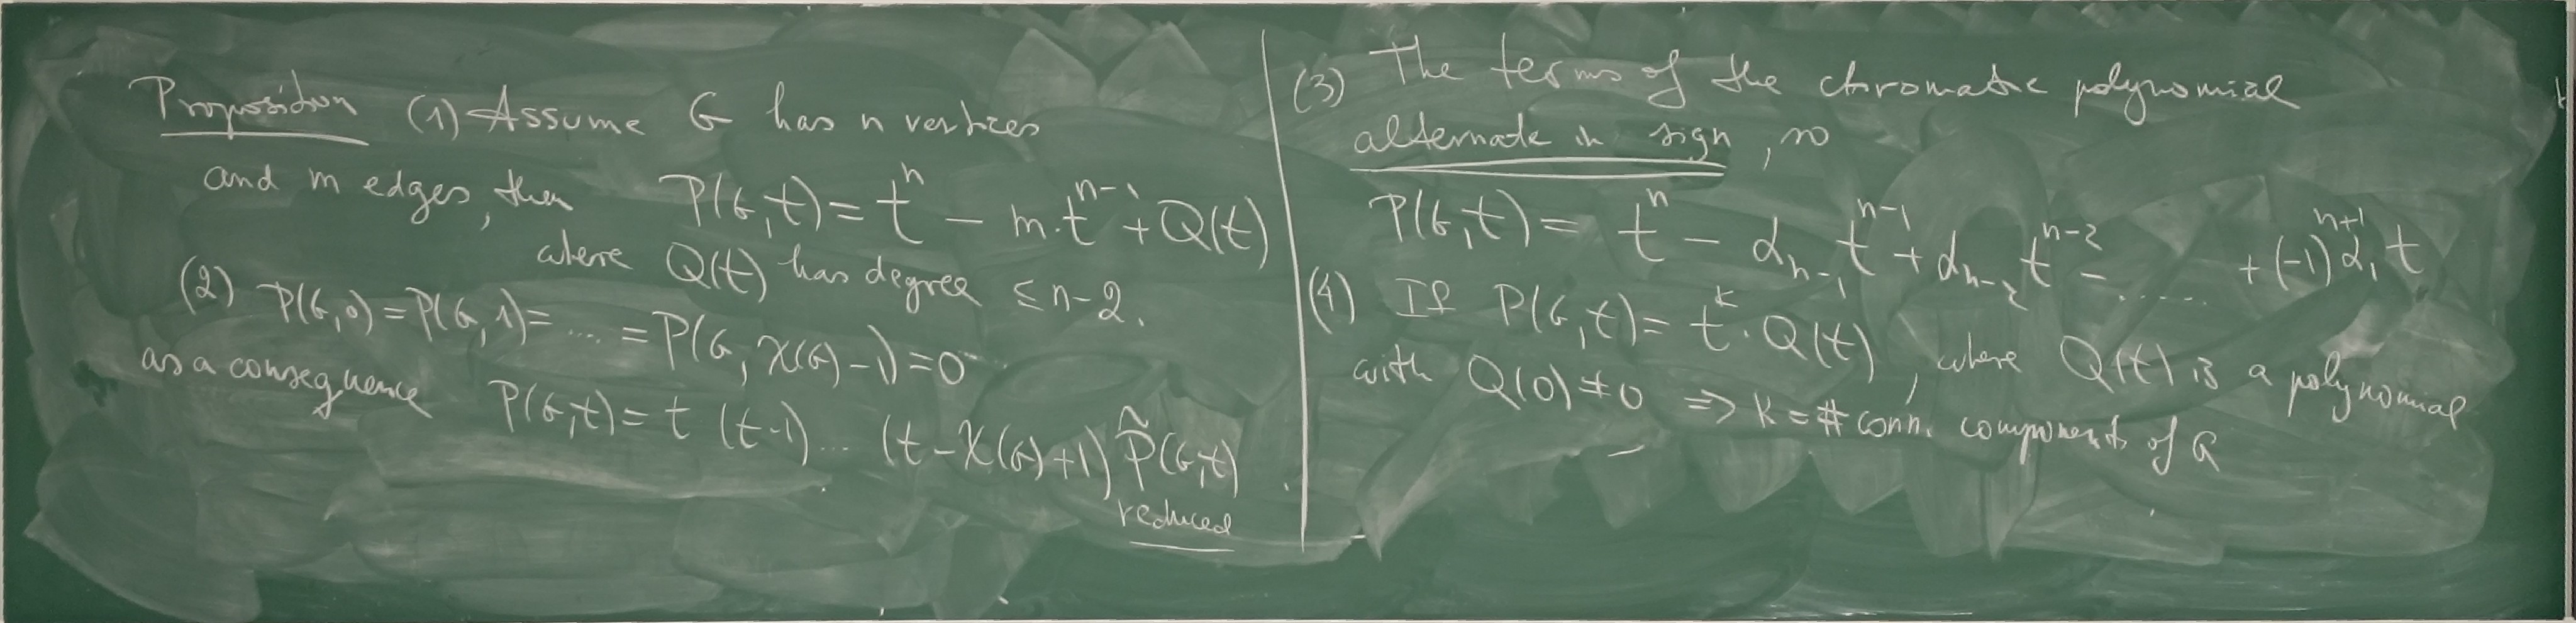 Proposition (1) Assume G has n vertices
and m edges, then P(G,t) = t^n - m·t^{n-1} + Q(t)
where Q(t) has degree ≤ n-2.
(2) P(G,0) = P(G,1) = .... = P(G, χ(G)-1) = 0
as a consequence P(G,t) = t (t-1) ... (t-χ(G)+1) P̃(G,t).
reduced
(3) The terms of the chromatic polynomial
alternate in sign, so
P(G,t) = t^n - α_{n-1} t^{n-1} + α_{n-2} t^{n-2} - ...... + (-1)^{n+1} α_1 t
(4) If P(G,t) = t^k · Q(t), where Q(t) is a polynomial
with Q(0) ≠ 0 => k = # conn. components of G